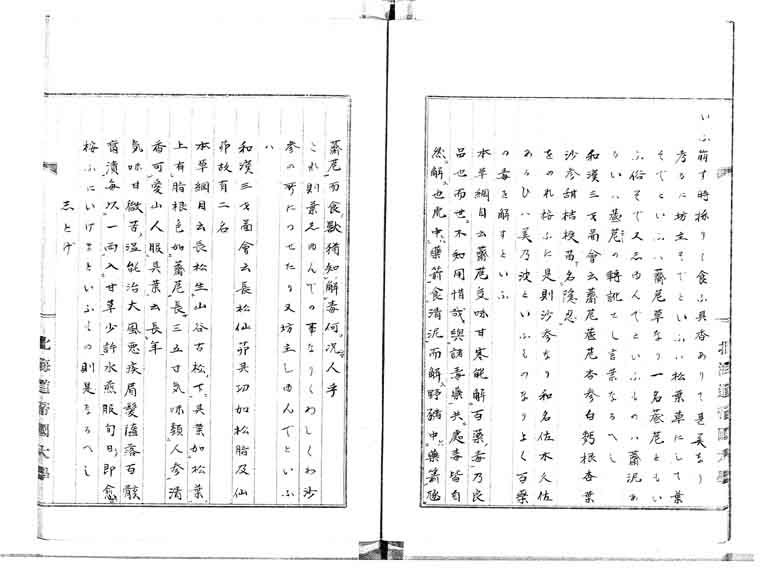 いふ崩す時採りて食ふ具香ありて是美なり
考るに坊主そでといふハ松葉草にして葉
そでといふハ薺苨草なり一名苨ともいい
ふ俗そで又ゑゆんでといふものハ薺泥わ
るいハ苨の轉訛せし言葉なるへし
和漢三才圖會云薺苨苨杏參白麪根杏葉
沙参甜桔梗苗名隠忍
をのれ按ふに是則沙参なり和名佐木久佐
あるひハ美乃波といふものなりよく百藥
の毒を解すといふ
本草綱目云薺苨氣味甘寒能解百藥毒乃良
品也而世不知用惜哉與諸毒藥共處毒皆自
然解也虎中藥箭食清泥而解野猪中藥箭豗
薺苨而食獣猶知解毒何况人乎
これ則葉ゑゆんでの事なりくわしくわ沙
參の所にのせたり又坊主しゆんでといふ
ハ
和漢三才圖會云長松仙茆其功如松脂及仙
茆故有二名
本草綱目云長松生山谷古松下其葉如松葉
上有脂根色如薺苨長三五寸氣味類人參清
香可愛山人服其葉云長年
気味甘微苦温能治大風悪疾眉髪墮落百骸
腐潰毎以一両入甘草少許水煎服旬日即愈
按ふにいけまといふもの則是なるへし
ゑとげ
北海道帝國大學
北海道帝國大學